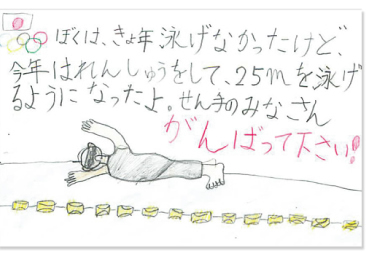 ぼくは、きょ年泳げなかったけど、
今年はれんしゅうをして、25mを泳げ
るようになったよ。せん手のみなさん
がんばって下さい!